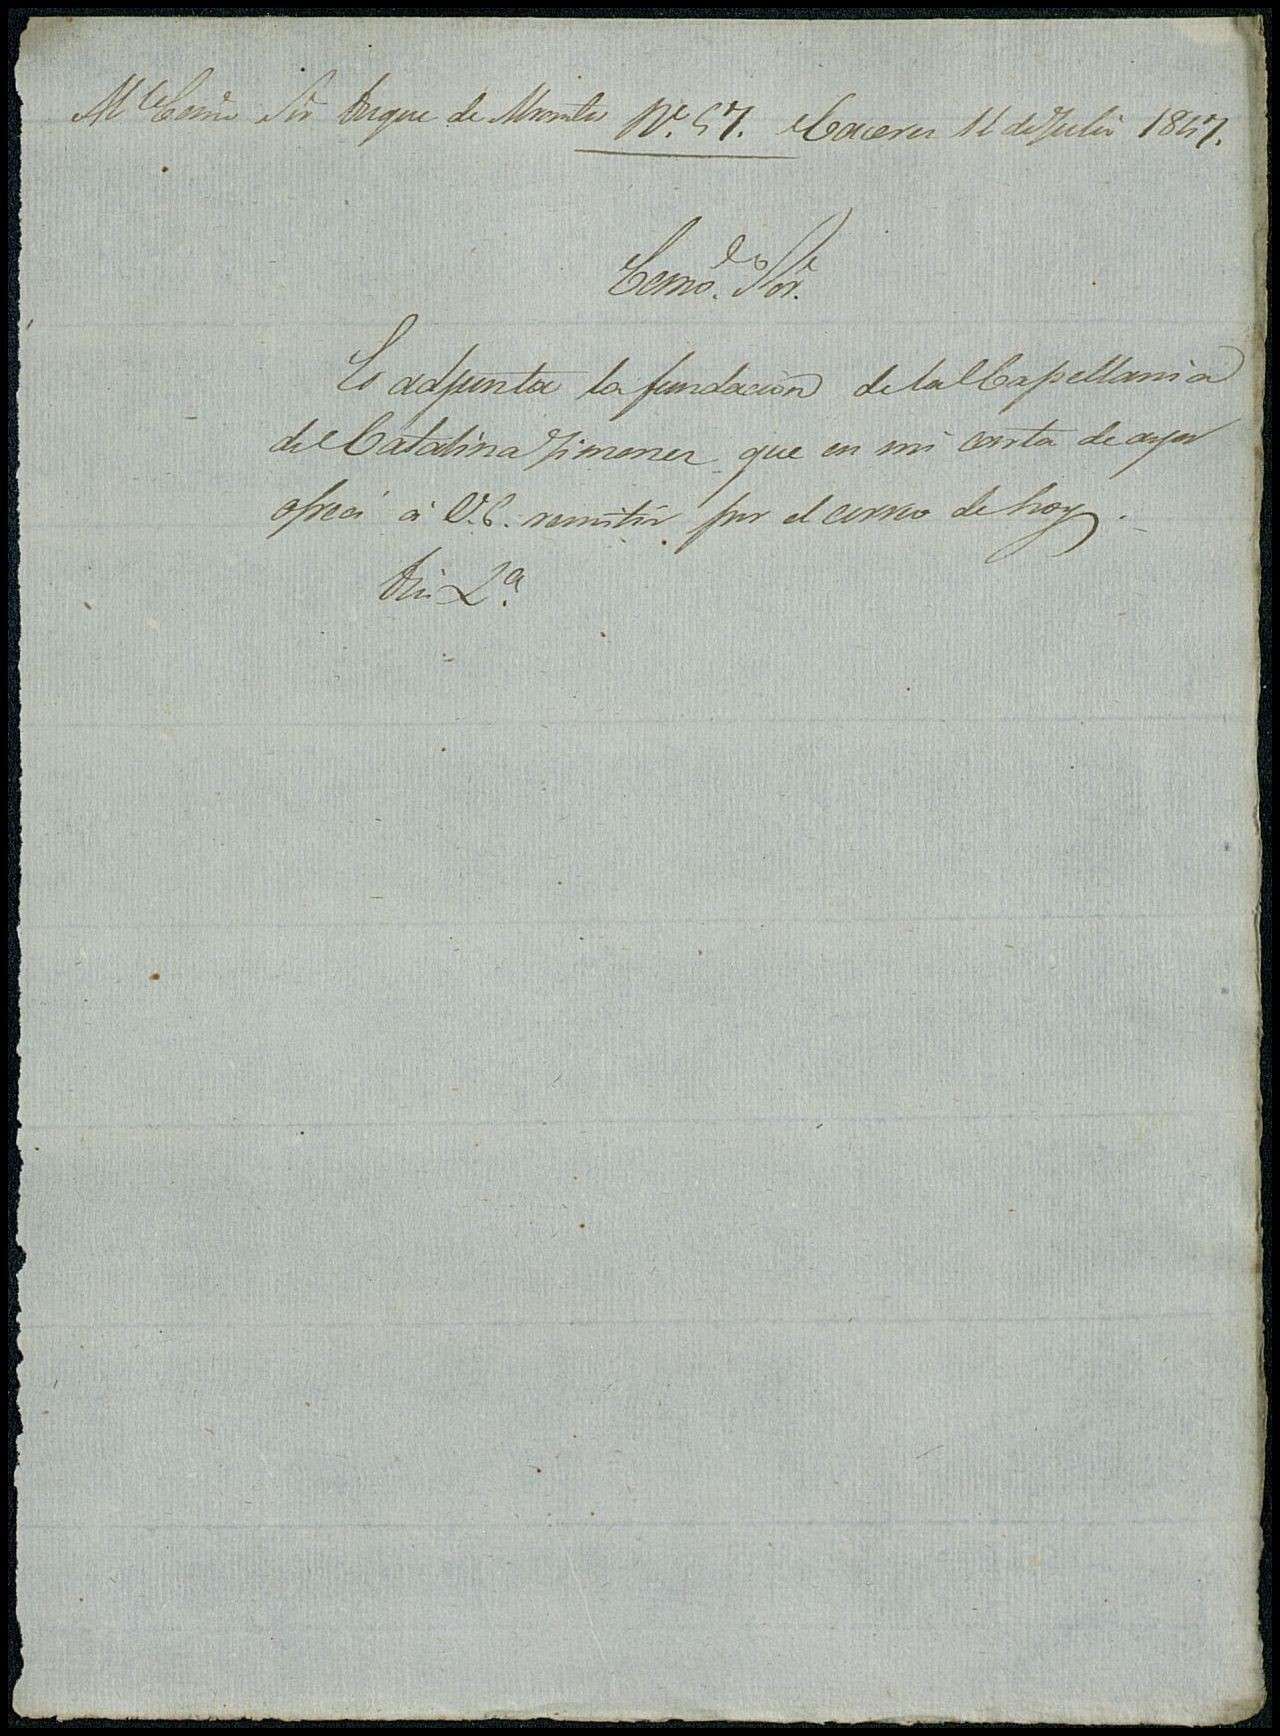 Al Ecmo Sor Duque de Nº 57. Caceres 11 de Julio 1857.
Ecmo. Sor.
Es adjunta la fundacion de la Capellania
de Catalina Jimenez que en mi carta de ayer
ofreci á V.E. remitir por el correo de hoy.